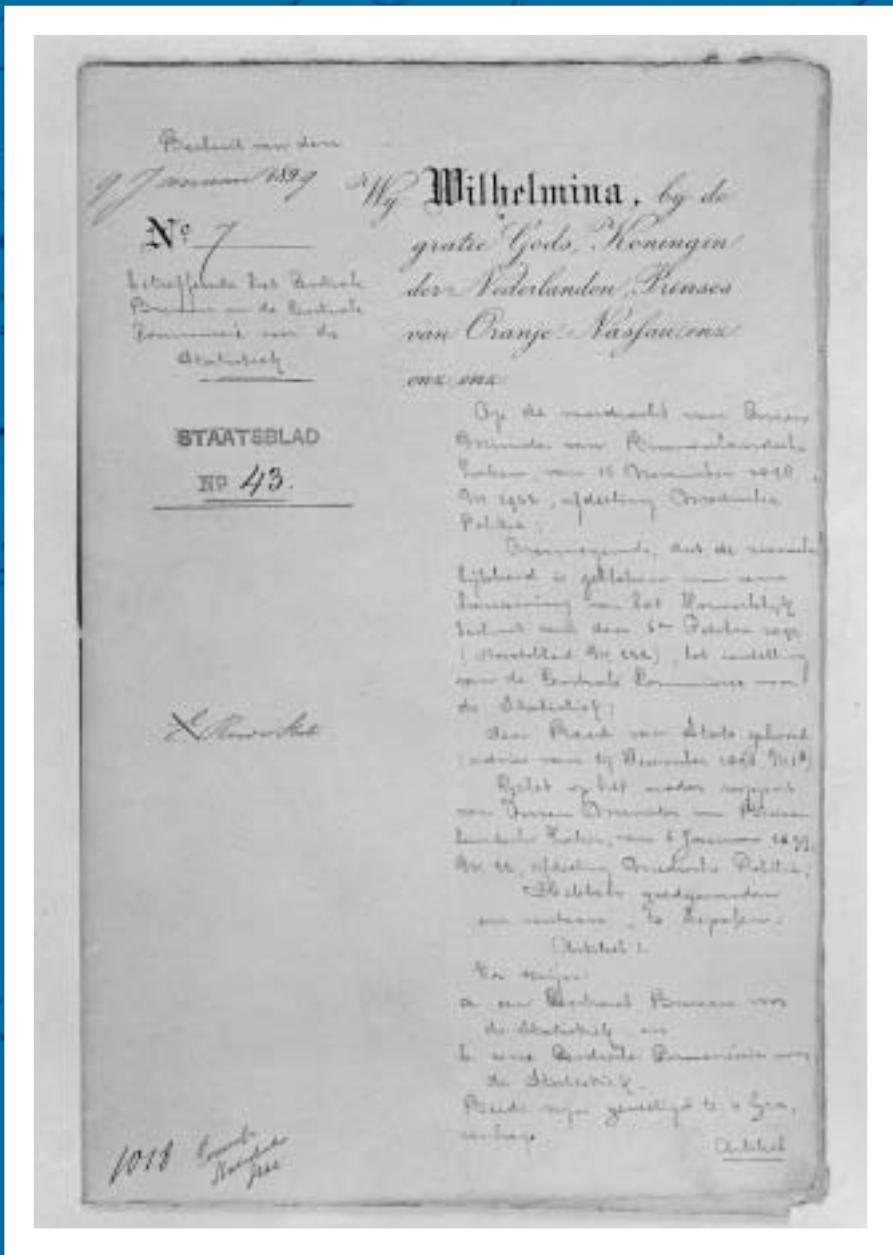 Besluit van den
9 Januari 1899
No. 7
betreffende het Centrale
Bureau en de Centrale
Commissie voor de
Statistiek
STAATSBLAD
No 43.
Wij Wilhelmina, bij de
gratie Gods, Koningin
der Nederlanden, Prinses
van Oranje-Nassau, enz
enz enz
Op de voordracht van Onzen
Minister van Binnenlandsche
Zaken, van 15 November 1898,
afdeeling Medische
Politie;
Overwegende, dat de
is gebleken van eene
herziening van het Koninklijk
besluit van den 6en October 1892
(Staatsblad No 232), tot instelling
van de Centrale Commissie voor
de Statistiek;
den Raad van State gehoord
(advies van 19 December 1898
Gelet op het nader rapport
van Onzen Minister van Binnen
landsche Zaken, van 6 Januari 1899,
afdeeling Medische Politie;
Hebben goedgevonden
en verstaan, te bepalen:
Artikel 1.
Er zijn:
a een Centraal Bureau voor
de Statistiek en
b eene Centrale Commissie voor
de Statistiek.
Beide zijn gevestigd te 's Gra
venhage
Artikel
1018